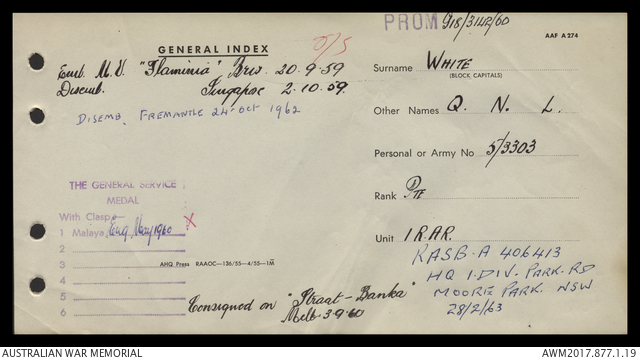 PROM 918/3142/60
AAF A274
GENERAL INDEX
O/S
Emb. M.V. "Flaminia" Bris 20-9-59
Disemb. Singapore 2-10-59
DISEMB. FREMANTLE 24 OCT 1962
Surname WHITE
(BLOCK CAPITALS)
Other Names Q. N. L.
Personal or Army No 5/3303
Rank Pte
Unit 1 R.A.R.
RASB-A 406413
HQ 1. DIV. PARK. RD
MOORE PARK. NSW
28/2/63
THE GENERAL SERVICE
MEDAL
With Clasp
1 Malaya May 1960 X
2
3
4
5
6
AHQ Press RAAOC—136/55—4/55—1M
Consigned on "Straat-Banka"
Melb. 3-9-60
AUSTRALIAN WAR MEMORIAL
AWM2017.877.1.19